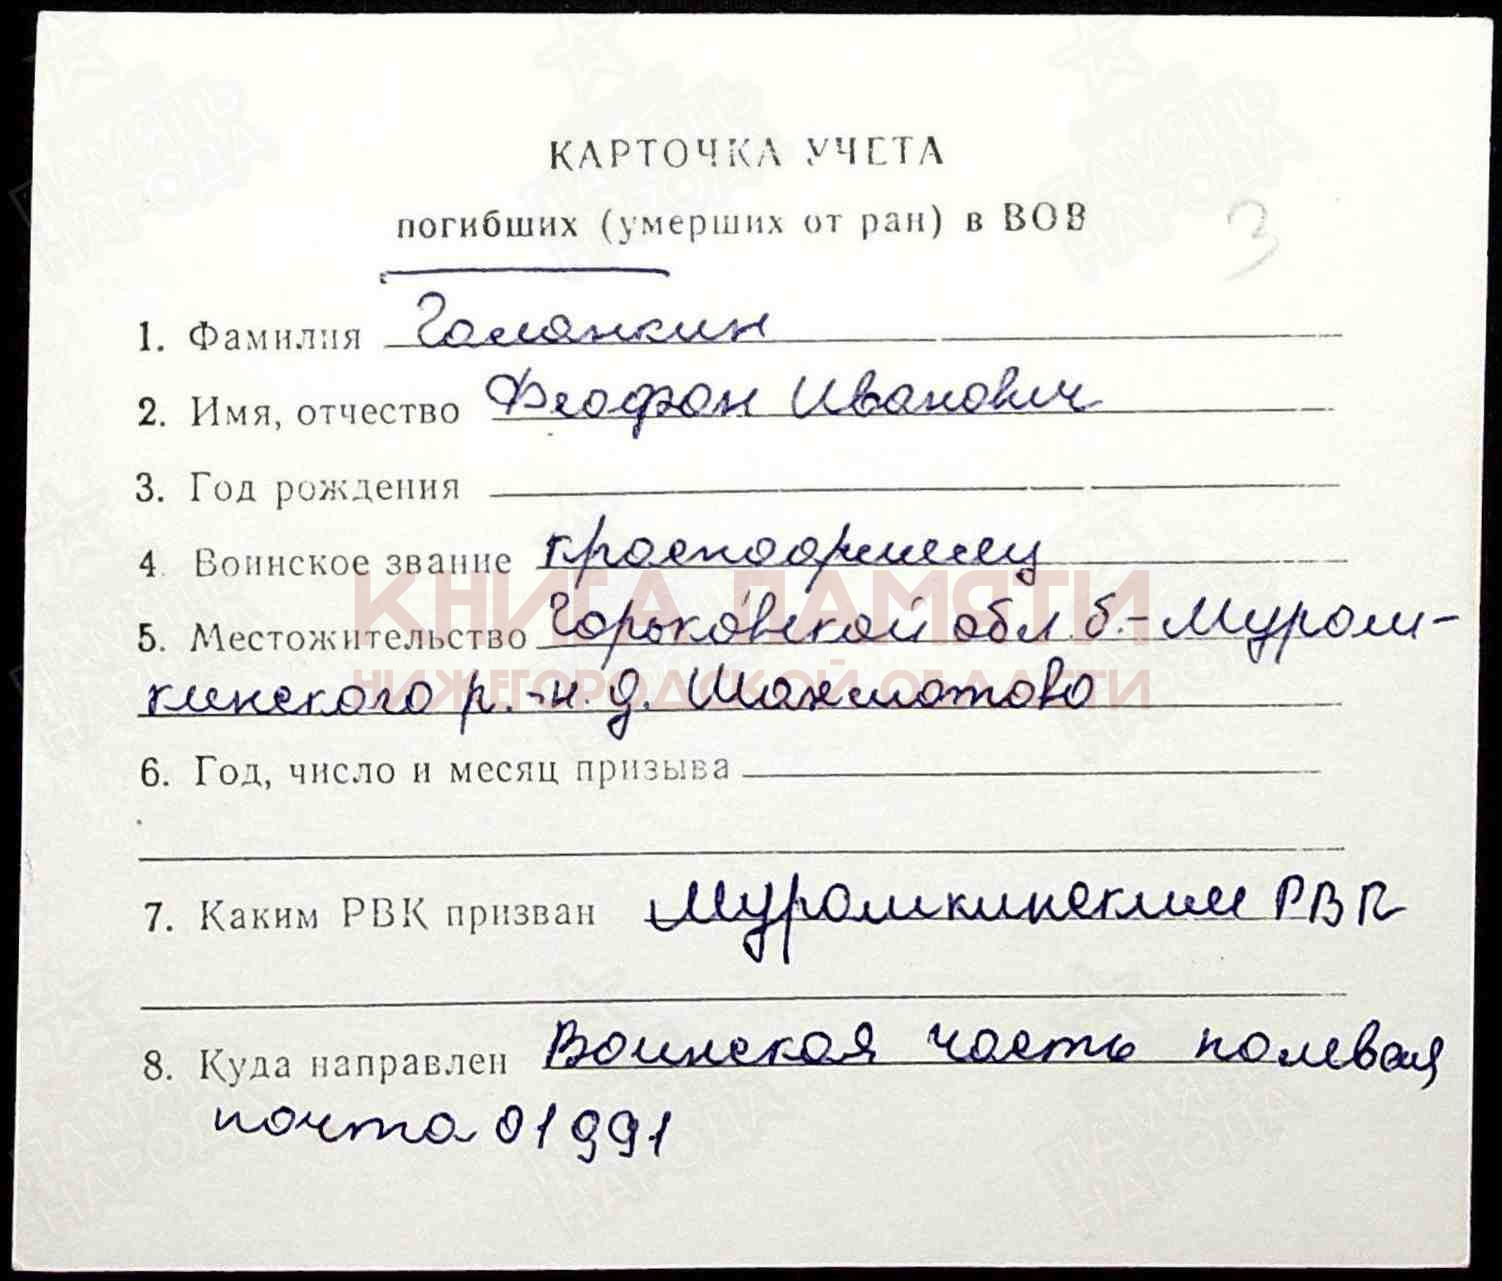 КАРТОЧКА УЧЕТА
погибших (умерших от ран) в ВОВ
3
1. Фамилия Галанкин
2. Имя, отчество Феофан Иванович
3. Год рождения
4. Воинское звание красноармеец
5. Местожительство Горьковской обл. б.-Муром-
кинского р.-н. д. Шахматово
6. Год, число и месяц призыва
7. Каким РВК призван Муромкинским РВК
8. Куда направлен Воинская часть полевая
почта 01991
КНИГА ПАМЯТИ
НИЖЕГОРОДСКОЙ ОБЛАСТИ
ПАМЯТЬ НАРОДА